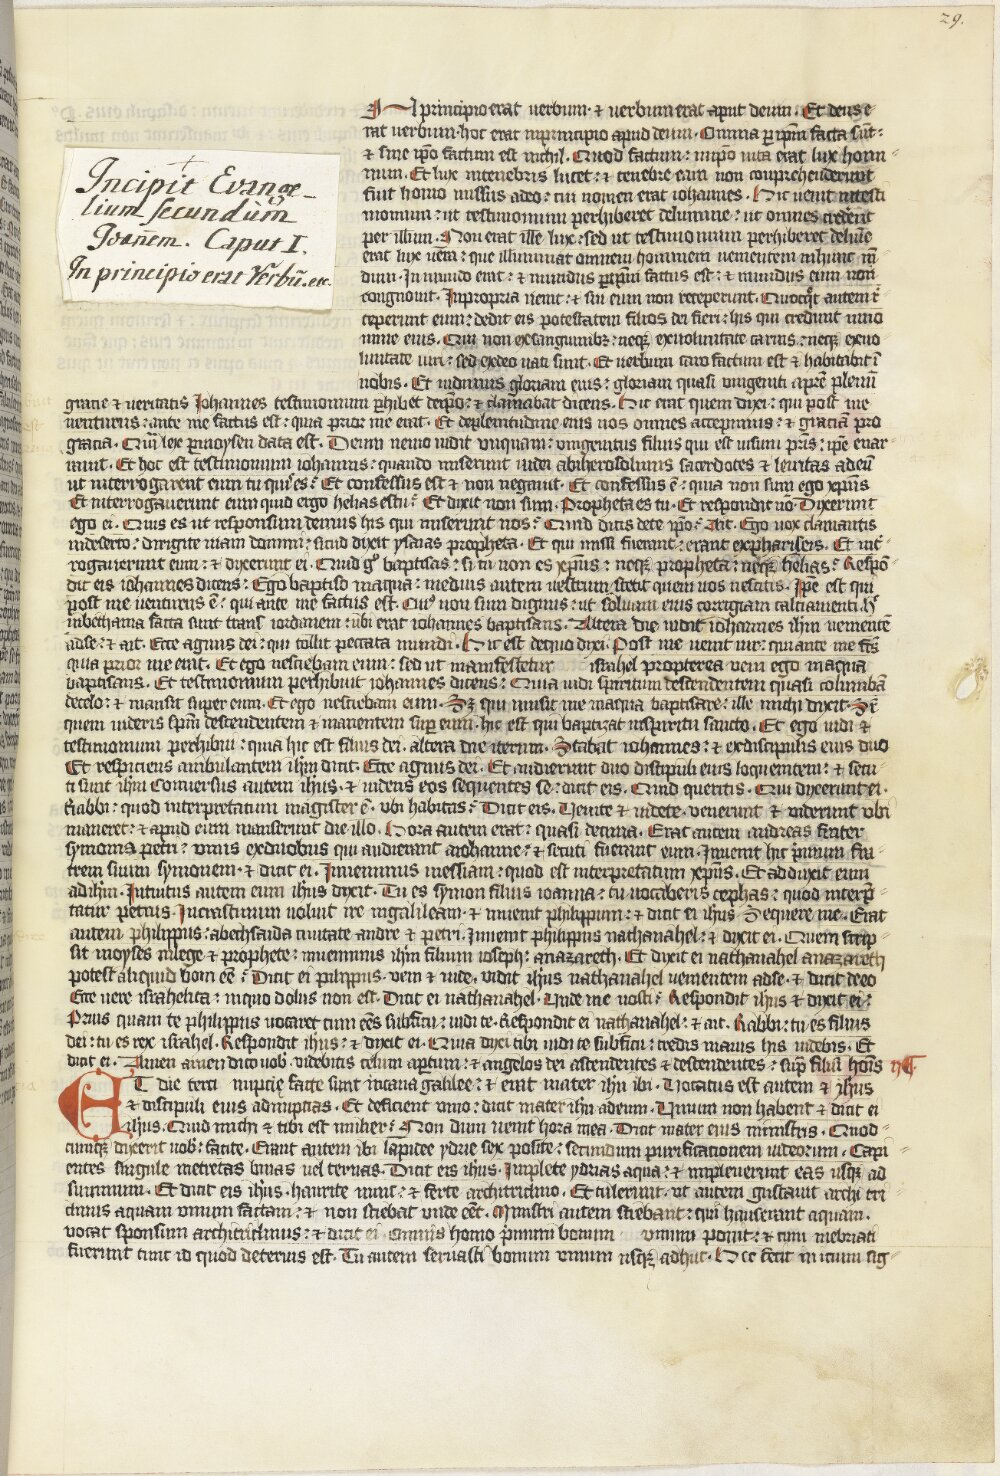 29.
Incipit Evange-
lium secundùm
Joañem. Caput I.
In principio erat Verbũ. etc.
In principio erat uerbum · ⁊ uerbum erat aput deum · Et deus e
rat uerbum · hoc erat inprincipio apud deum · Omnia ꝑ ip̃m facta sũt :
⁊ sine ip̃o factum est nichil · Quod factum : inip̃o uita erat lux homi
num · Et lux intenebris lucet : ⁊ tenebre eam non comprehenderunt
fuit homo missus adeo : cui nomen erat iohannes · Hic uenit intesti
monium : ut testimonium perhiberet delumine : ut omnes crederẽt
per illum · Non erat ille lux : sed ut testimonium perhiberet delum̃e
erat lux uera : que illuminat omnem hominem uenientem inhunc mũ
dum · In mundo erat : ⁊ mundus ꝑ ip̃um factus est : ⁊ mundus eum non
congnouit · Inpropria uenit : ⁊ sui eum non receperunt · Quotq̃t autem r̃
ceperunt eum : dedit eis potestatem filios dei fieri : his qui credunt inno
mine eius · Qui non exsanguinibꝫ : neqꝫ exuoluntate carnis : neqꝫ exuo
luntate uiri : sed exdeo nati sunt · Et uerbum caro factum est ⁊ habitabit ĩ
nobis · Et uidimus gloriam eius : gloriam quasi unigeniti apr̃e plenũ
gratie ⁊ ueritatis Johannes testimonium ꝑhibet deip̃o : ⁊ clamabat dicens · Hic erat quem dixi : qui post me
uenturus : ante me factus est : quia prior me erat · Et deplenitudine eius nos omnes accepimus : ⁊ graciã pro
gracia · Quia lex ꝑ moysen data est · Deum nemo uidit unquam : unigenitus filius qui est insinu pr̃is : ip̃e enar
rauit · Et hoc est testimonium iohannis : quando miserunt iudei abiherosolimis sacerdotes ⁊ leuitas adeũ
ut interrogarent eum tu qui es : Et confessus est ⁊ non negauit · Et confessus ẽ : quia non sum ego xp̃us
Et interrogauerunt eum quid ergo helias es tu : Et dixit non sum · Propheta es tu · Et respondit nõ Dixerunt
ergo ei · Quis es ut responsum demus his qui miserunt nos : Quid dicis dete ip̃o : Ait · Ego uox clamantis
indeserto : dirigite uiam domini : sicud dixit ysaias propheta · Et qui missi fuerant : erant exphariseis · Et int̃
rogauerunt eum : ⁊ dixerunt ei · Quid gͦ baptisas : si tu non es xp̃us : neqꝫ propheta : neqꝫ helias : Respõ
dit eis iohannes dicens : Ego baptiso inaqua : medius autem uestrum stetit quem uos nescitis · Ip̃e est qui
post me uenturus ẽ : qui ante me factus est · Cuiͥ non sum dignus : ut soluam eius corrigiam calciamenti · H̾
inbethania facta sunt trans iordanem : ubi erat iohannes baptisans · Altera die uidit iohannes ih̃m uenientẽ
adse : ⁊ ait · Ecce agnus dei : qui tollit peccata mundi · Hic est dequo dixi · Post me uenit uir : qui ante me fc̃s
quia prior me erat · Et ego nesciebam eum : sed ut manifestetur israhel propterea veni ego inaqua
baptisans · Et testimonium perhibuit iohannes dicens : Quia uidi spiritum descendentem quasi columbã
decelo : ⁊ mansit super eum · Et ego nesciebam eum · Sꝫ qui misit me inaqua baptisare : ille michi dixit · Sr̃
quem uideris sp̃m descendentem ⁊ manentem sup̃ eum : hic est qui baptizat inspiritu sancto · Et ego uidi ⁊
testimonium perhibui : quia hic est filius dei · altera die iterum · Stabat iohannes : ⁊ exdiscipulis eius duo
Et respiciens ambulantem ih̃m dicit · Ecce agnus dei · Et audierunt duo discipuli eius loquentem : ⁊ secu
ti sunt ih̃m Conuersus autem ih̃us · ⁊ uidens eos sequentes se : dicit eis · Quid queritis · Qui dixerunt ei ·
Rabbi : quod interpretatum magister ẽ · vbi habitas : Dicit eis · Uenite ⁊ uidete · venerunt ⁊ uiderunt vbi
maneret : ⁊ apud eum manserunt die illo · Hora autem erat : quasi decima · Erat autem andreas frater
symonis petri : unus exduobus qui audierant aiohanne : ⁊ secuti fuerant eum · Inuenit hic primum fra
trem suum symonem · ⁊ dicit ei · Inuenimus messiam : quod est interpretatum xp̃us · Et adduxit eum
adih̃m · Intuitus autem eum ih̃us dixit · Tu es symon filius ioanna : tu uocaberis cephas : quod interp̃
tatur petrus · Incrastinum uoluit ire ingalileam · ⁊ inuenit philippum : ⁊ dicit ei ih̃us Sequere me · Erat
autem philippus : abethsaida ciuitate andre ⁊ petri · Inuenit philippus nathanahel : ⁊ dixit ei · Quem scrip
sit moyses inlege ⁊ prophete : inuenimus ih̃m filium ioseph : anazareth · Et dixit ei nathanahel anazareth
potest aliquid boni eẽ : Dicit ei pilippus · veni ⁊ uide · vidit ih̃us nathanahel uenientem adse · ⁊ dicit deeo
Ecce uere israhelita : inquo dolus non est · Dicit ei nathanahel · Unde me nosti : Respondit ih̃us ⁊ dixit ei :
Prius quam te philippus uocaret cum eẽs subficu : uidi te · Respondit ei nathanahel : ⁊ ait · Rabbi : tu es filius
dei : tu es rex israhel · Respondit ih̃us : ⁊ dixit ei · Quia dixi tibi uidi te subficu : credis maius his uidebis · Et
dicit ei · Amen amen dico uob̾ · videbitis celum aptum : ⁊ angelos dei ascendentes ⁊ descendentes : sup̃ filiũ hoĩs
ET die terci nuptie facte sunt incana galilee : ⁊ erat mater ih̃u ibi · Uocatus est autem ⁊ ih̃us
⁊ discipuli eius adnuptias · Et deficient uino : dicit mater ih̃u adeum · Uinum non habent ⁊ dicit ei
ih̃us · Quid michi ⁊ tibi est mulier : Non dum uenit hora mea · Dicit mater eius ministris · Quod
cumqꝫ dixerit uob̾ : facite · Erant autem ibi lapidee ydrie sex posite : secundum purificationem iudeorum · Capi
entes singule metretas binas uel ternas · Dicit eis ih̃us · Implete ydrias aqua : ⁊ impleuerunt eas usqꝫ ad
summum · Et dicit eis ih̃us · haurite nunc : ⁊ ferte architriclino · Et tulerunt · ut autem gustauit archi tri
clinus aquam uinum factam : ⁊ non sciebat unde eẽt · Ministri autem sciebant : qui hauserant aquam ·
vocat sponsum architriclinus : ⁊ dicit ei omnis homo primum bonum uinum ponit : ⁊ cum inebriati
fuerunt tunc id quod deterius est · Tu autem seruasti bonum uinum usqꝫ adhuc · Hoc fecit inicium sig